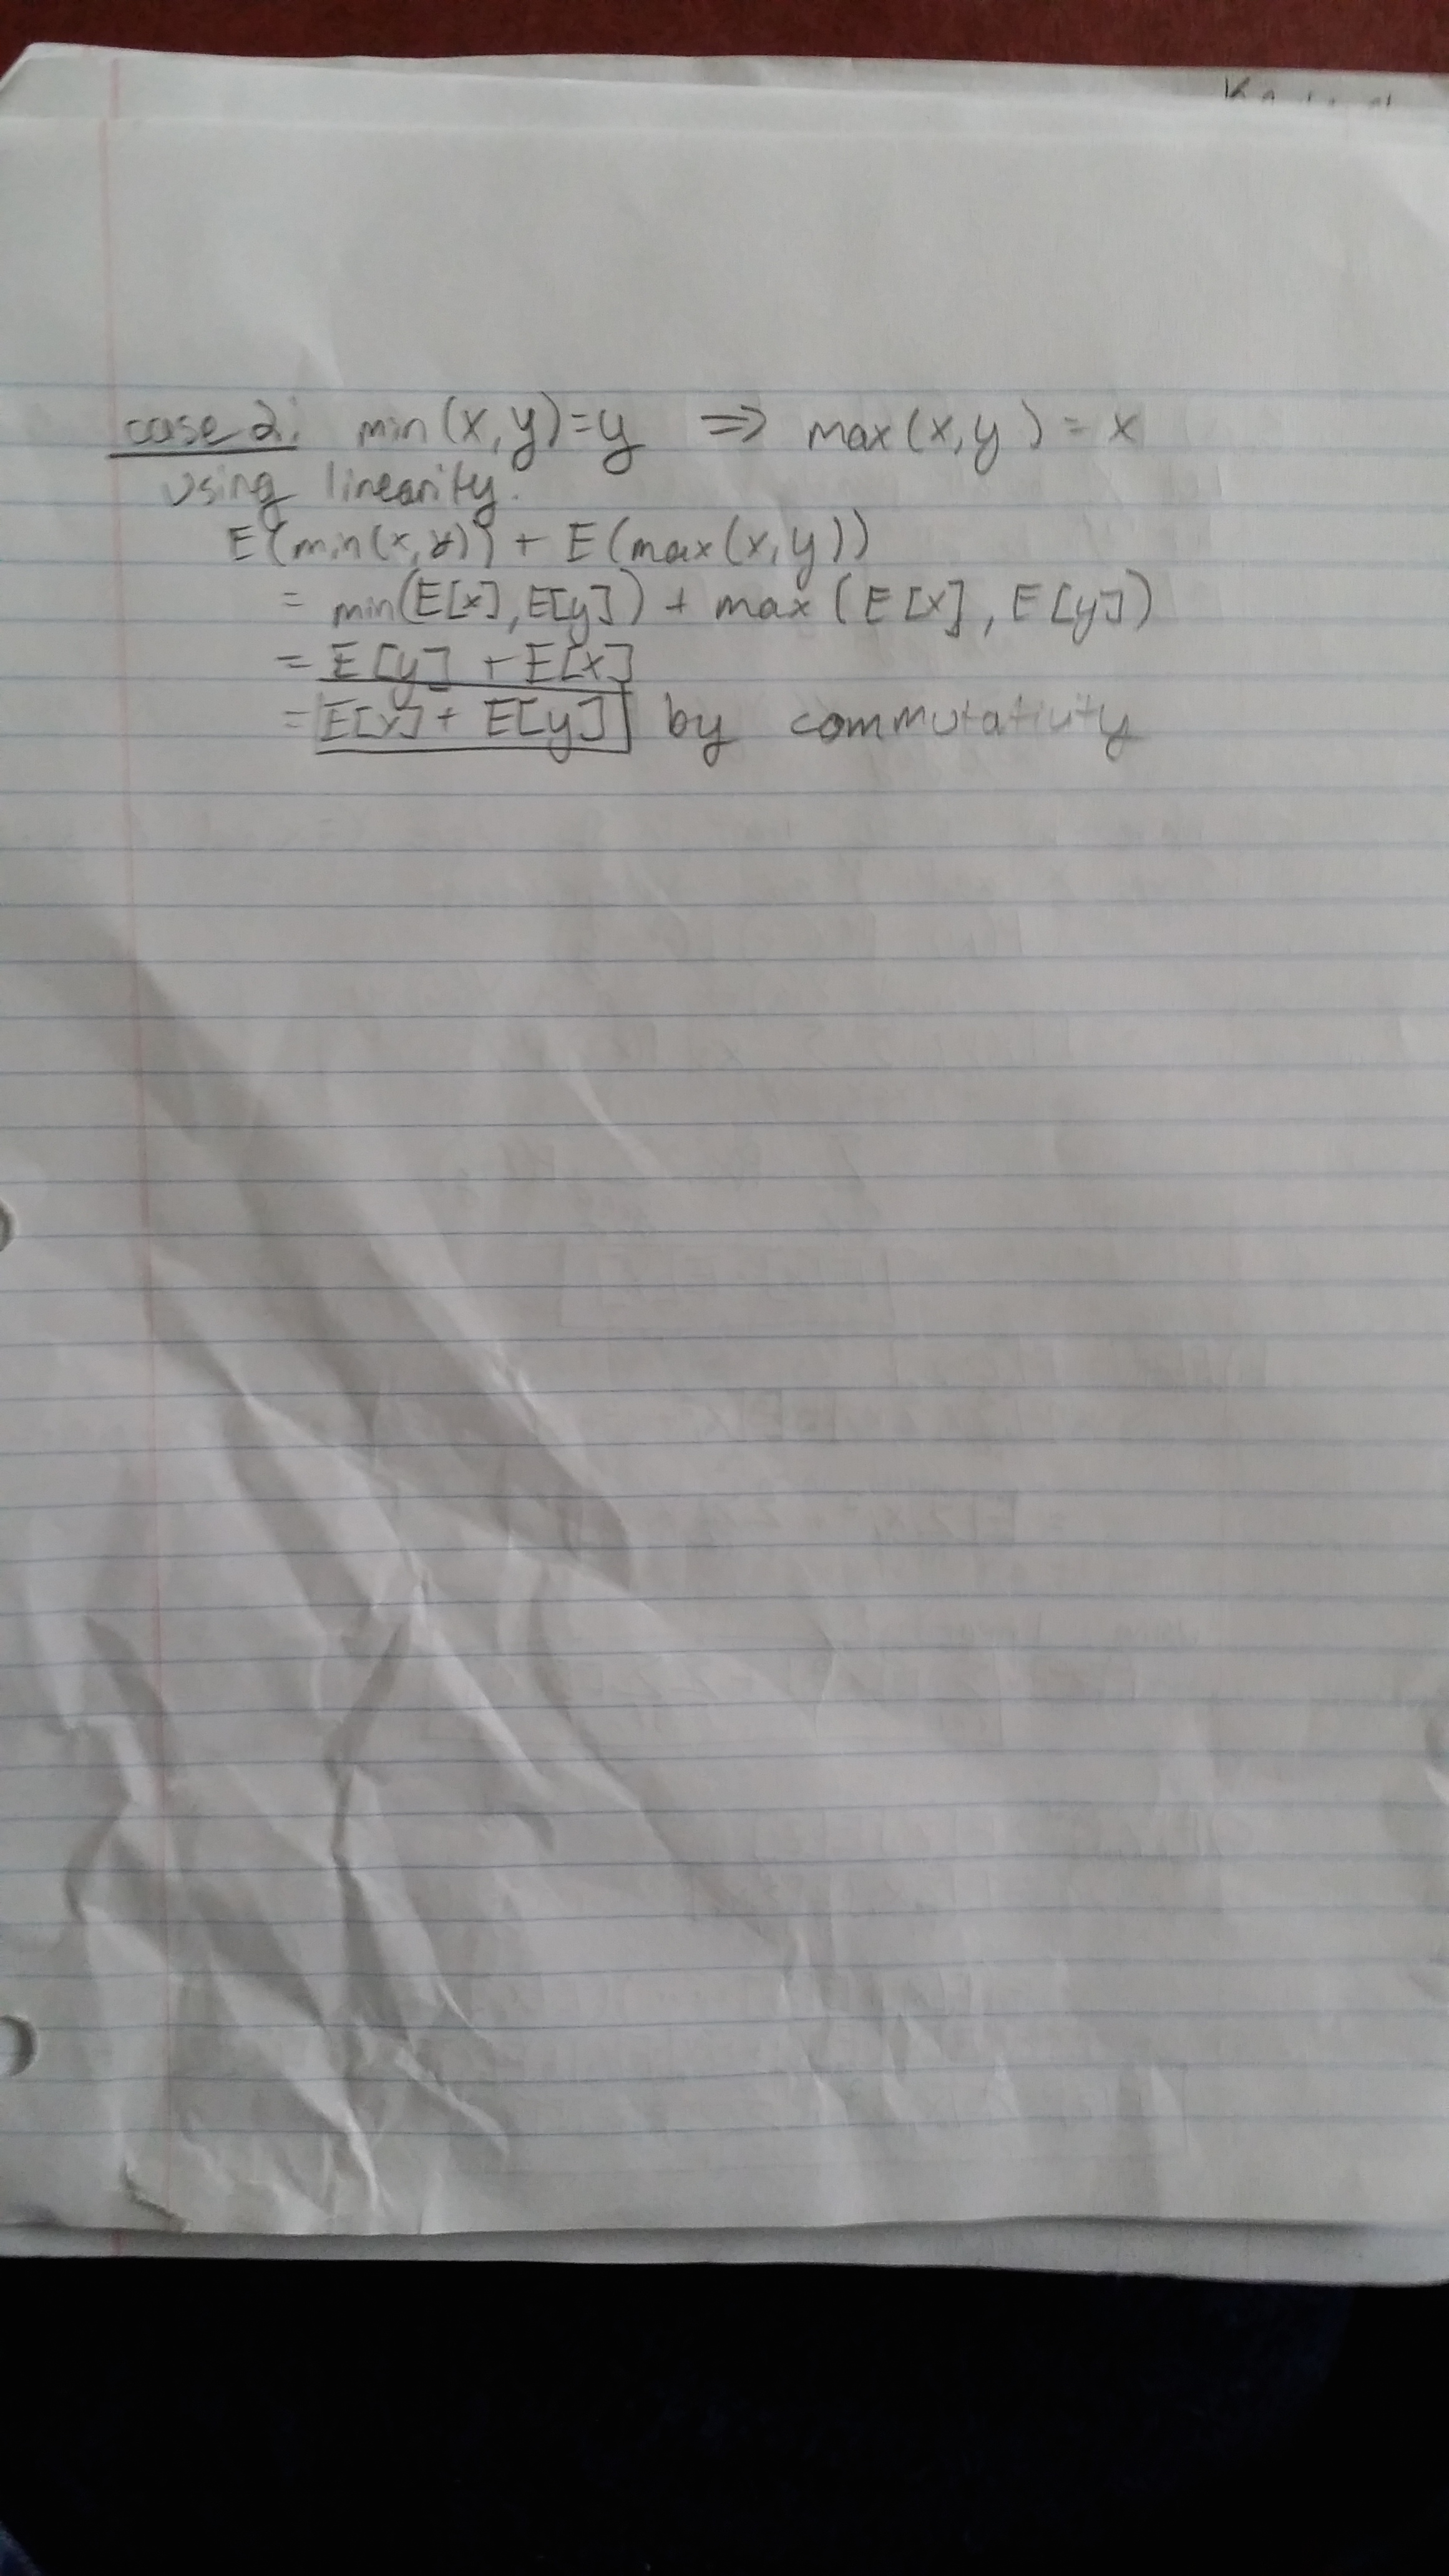 case 2: min(x,y)=y ⇒ max(x,y)=x
using linearity.
E(min(x,y)) + E(max(x,y))
= min(E[x],E[y]) + max(E[x],E[y])
= E[y] + E[x]
= E[x] + E[y] by commutativity